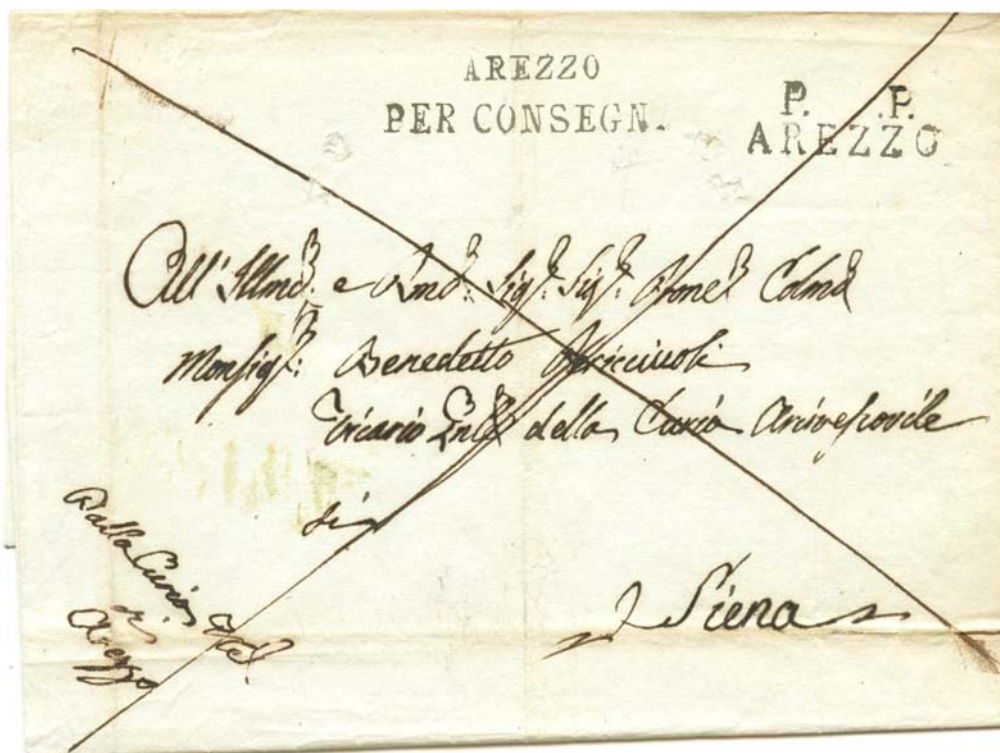 AREZZO
PER CONSEGN.
P. P.
AREZZO
All' Illmo: e Rmo: Sigr: Sigr: Prone Colmo
Monsigr: Benedetto
Vicario Gnle della Curia Arcivescovile
di
Siena
Dalla Curia
di
Arezzo